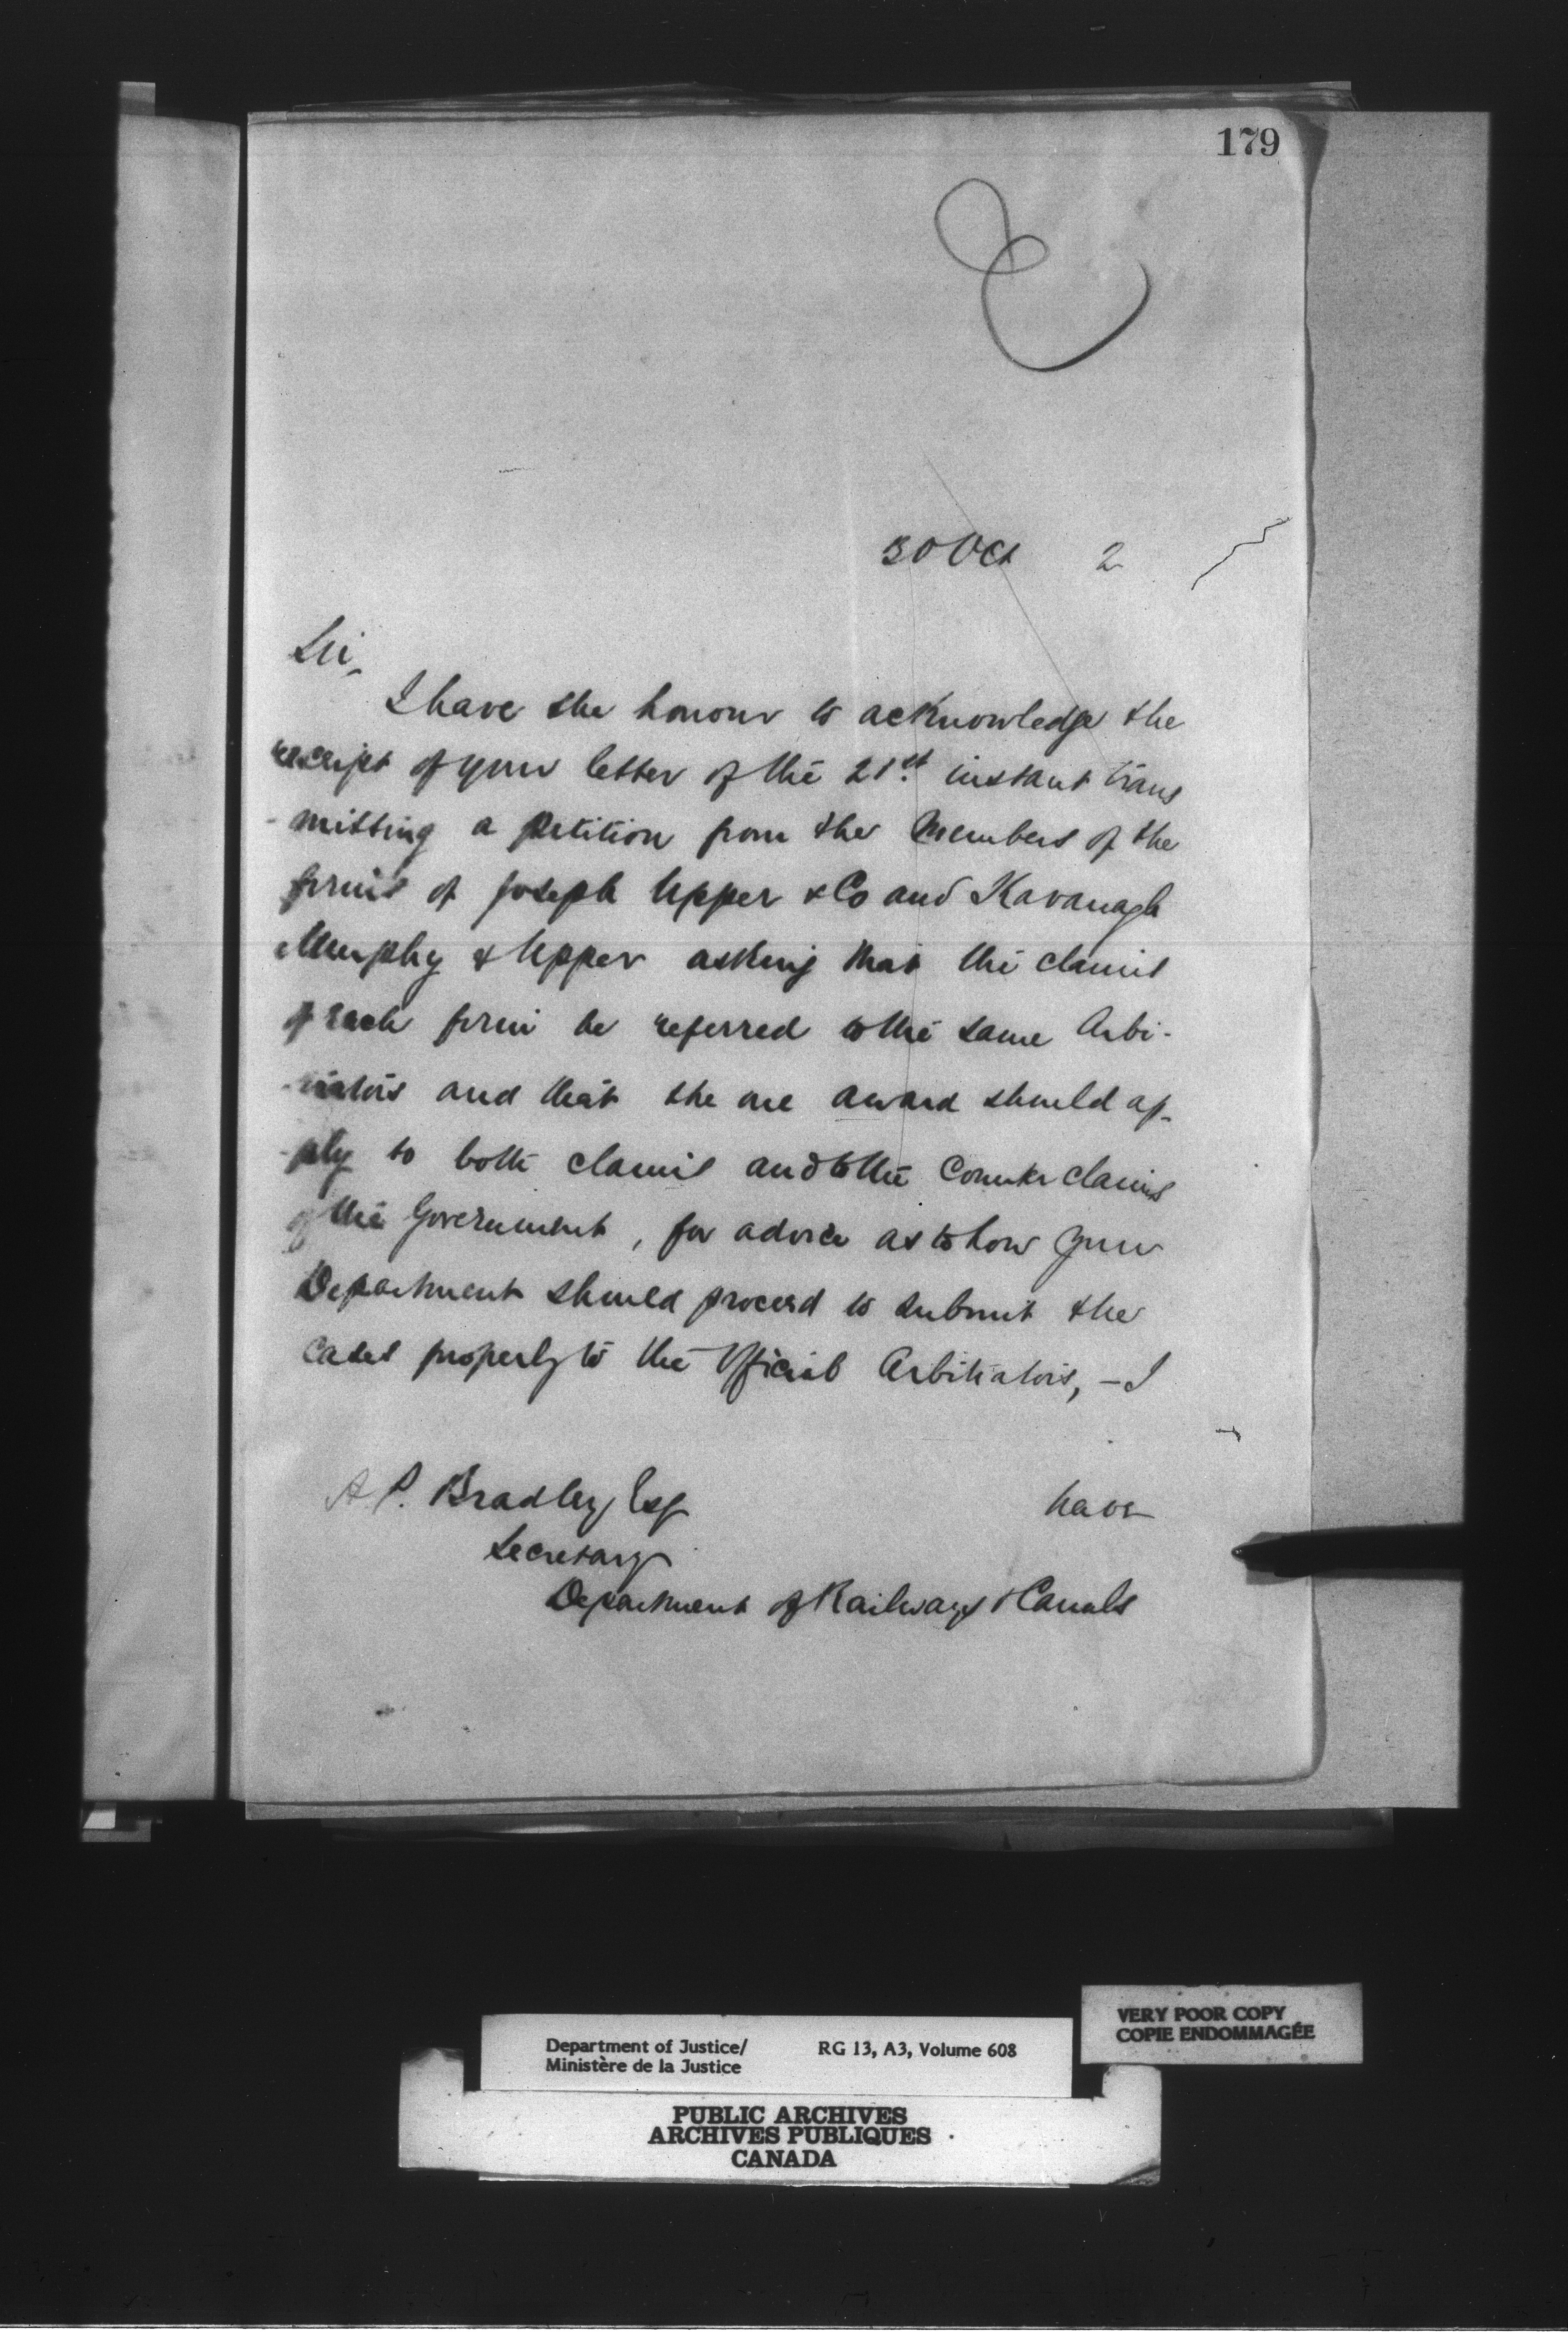 179
30 Oct 2
Sir,
I have the honour to acknowledge the
receipt of your letter of the 21st. instant trans
-mitting a petition from the Members of the
firms of Joseph Upper & Co and Kavanagh
Murphy & Upper asking that the claims
of each firm be referred to the same Arbi-
-trators and that the one award should ap-
-ply to both claims and to the Counter claims
of the Government, for advice as to how your
Department should proceed to submit the
cases properly to the Official Arbitrators, - I
have
A. P. Bradley Esq
Secretary
Department of Railways & Canals
VERY POOR COPY
COPIE ENDOMMAGÉE
Department of Justice/ RG 13, A3, Volume 608
Ministère de la Justice
PUBLIC ARCHIVES
ARCHIVES PUBLIQUES
CANADA